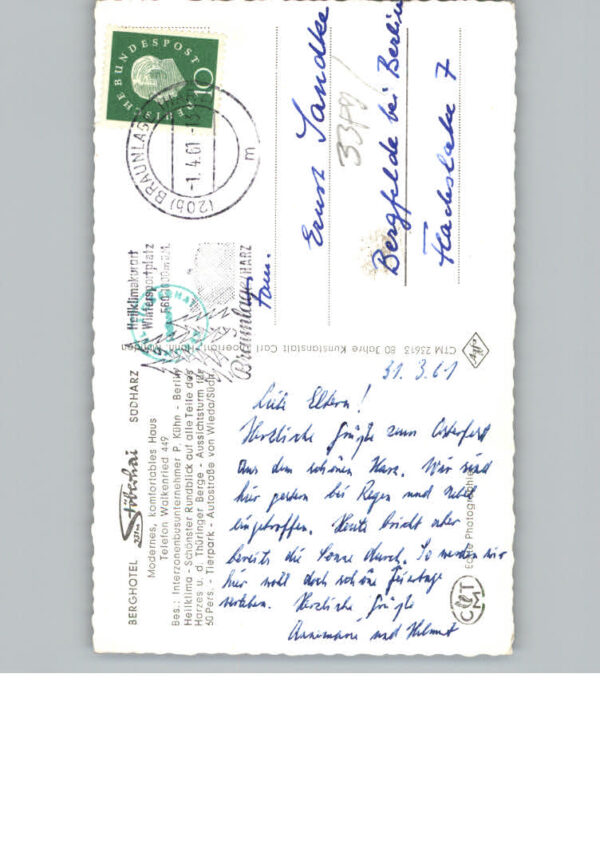 BERGHOTEL Stöberhai SÜDHARZ
Modernes, komfortables Haus
Telefon Walkenried 449
Bes.: Interzonenbusunternehmer P. Kühn - Berlin
Heilklima - Schönster Rundblick auf alle Teile des
Harzes u. d. Thüringer Berge - Aussichtsturm für
50 Pers. - Tierpark - Autostraße von Wieda/Südh.
DEUTSCHE BUNDESPOST
10
(20b) BRAUNLAGE
-1.4.61
m
Heilklimakurort
Wintersportplatz
Braunlage/HARZ
CTM 23613 80 Jahre Kunstanstalt Carl
Echte Photographie
CTM
31.3.61
Liebe Eltern!
Herzliche Grüße zum Osterfest
aus dem schönen Harz. Wir sind
hier gestern bei Regen und Nebel
eingetroffen. Heute bricht aber
bereits die Sonne durch. So werden wir
hier wohl doch schöne Feiertage
verleben. Herzliche Grüße
Annemarie und Helmut
Fam.
Ernst Sandke
Bergfelde bei Berlin
7